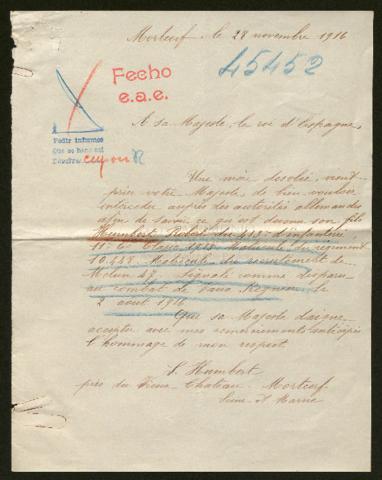 Mortcerf le 28 novembre 1916
45452
Fecho
e.a.e.
A sa Majesté, le roi d'Espagne,
Pedir informes
Que se hace así
Une mère désolée vient
prier votre Majesté, de bien vouloir
intercéder auprès des autorités allemandes
afin de savoir ce qui est devenu son fils
Humbert Robert d'infanterie
11e Cie Classe Matricule du régiment
10.448 Matricule du recrutement de
Melun 47. Signalé comme disparu
au combat de le
2 août 1916
Que sa Majesté daigne
accepter avec mes remerciements anticipés
l'hommage de mon respect.
S. Humbert
près du Vieux-Château Mortcerf
Seine et Marne